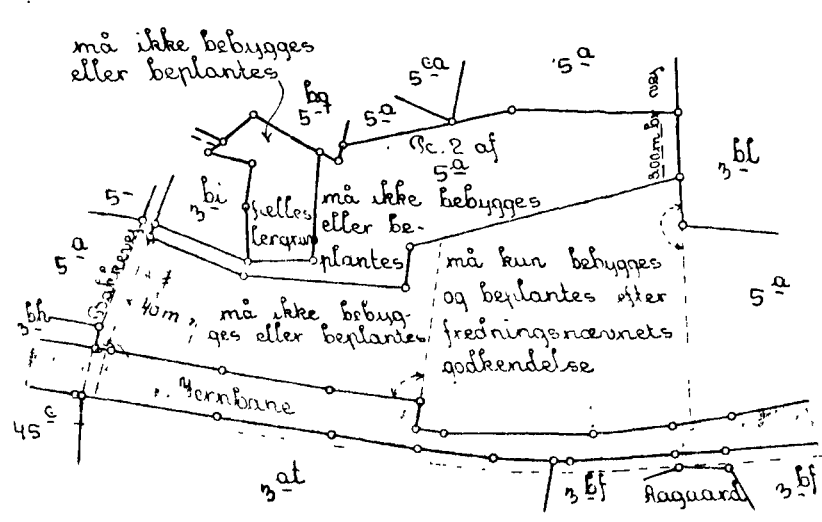 må ikke bebygges
eller beplantes
5 ca
5 a
5 bq
5 a
Pc. 2 af
5 a
3,00 m br vej
3 bl
3 bi
fælles
lergrav
må ikke bebygges
eller be-
plantes
5
5 a
Bakkevej
40 m
må ikke bebyg-
ges eller beplantes
må kun bebygges
og beplantes efter
fredningsnævnets
godkendelse
5 a
3 bh
Jernbane
45 c
3 at
3 bf
Aagaard
3 bf